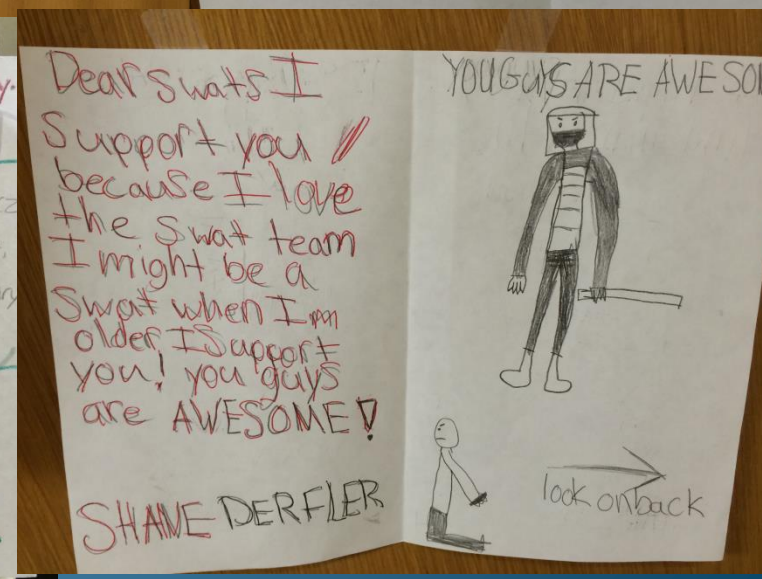 Dear swats I
Support you
because I love
the swat team
I might be a
Swat when I'm
older, I Support
you! you guys
are AWESOME!
SHANE DERFLER
YOU GUYS ARE AWESO
look on back